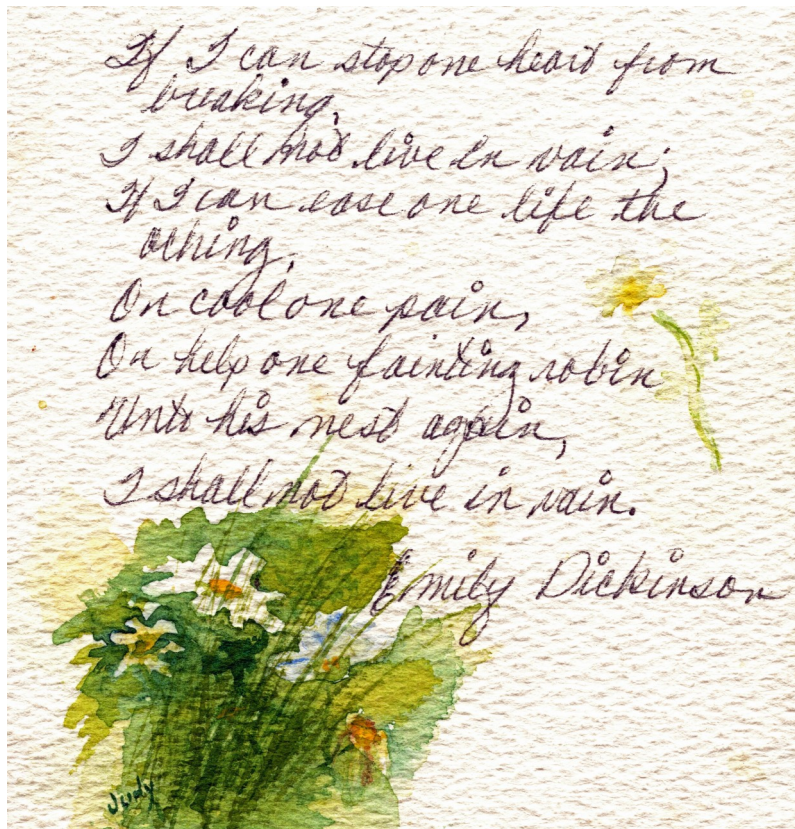 If I can stop one heart from
breaking,
I shall not live in vain;
If I can ease one life the
aching,
Or cool one pain,
Or help one fainting robin
Unto his nest again,
I shall not live in vain.
Emily Dickinson
Judy